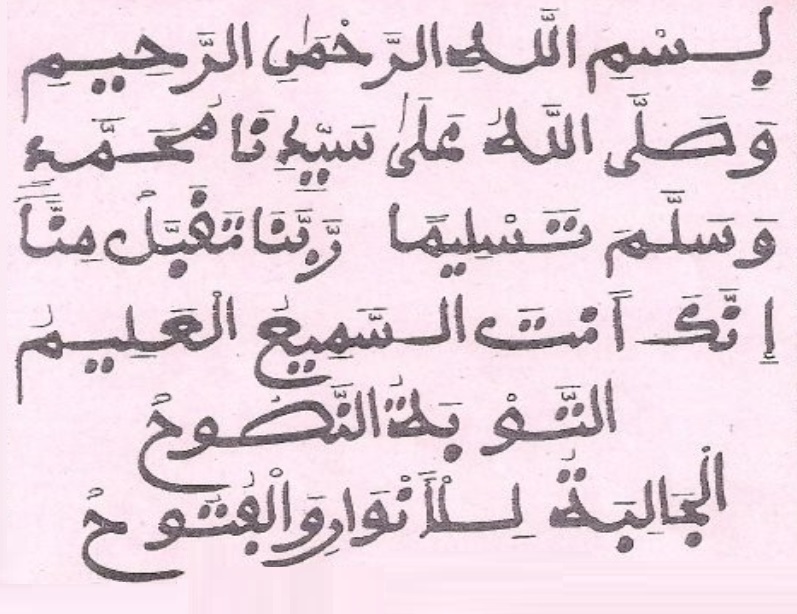 بِسْمِ اللَّهِ الرَّحْمَٰنِ الرَّحِيمِ
وَصَلَّى اللَّهُ عَلَىٰ سَيِّدِنَا مُحَمَّدٍ
وَسَلَّمَ تَسْلِيمًا رَبَّنَا تَقَبَّلْ مِنَّا
إِنَّكَ أَنْتَ السَّمِيعُ الْعَلِيمُ
التَّوْبَةُ النَّصُوحْ
الْجَالِبَةُ لِلْأَنْوَارِ وَالْفُتُوحْ